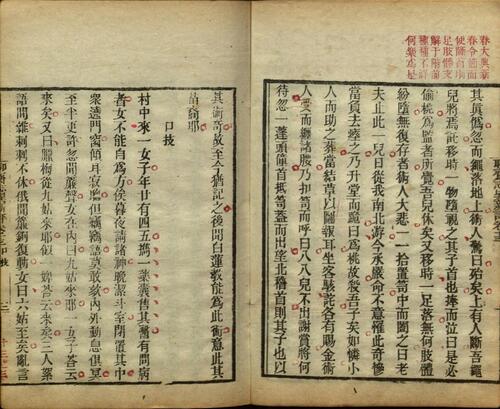 足肢體支
解于階前
種種不許
其眞忽而繩落地上術人驚曰殆矣上有人斷吾繩
兒將焉託移時一物墮視之其子首也捧而泣曰是必
偷桃為監者所覺吾兒休矣又移時一足落無何肢體
紛墮無復存者術人大悲一一拾置笥中而闔之曰老
夫止此一兒日從我南北游今承嚴命不意罹此奇慘
當負去瘞之乃升堂而跪曰為桃故殺吾子矣如憐小
人而助之葬當結草以圖報耳坐客駭詫各有賜金術
人受而纏諸腰乃扣笥而呼曰八八兒不出謝賞將何
待忽一蓬頭僮首抵笥蓋而出望北稽首則其子也以
其術奇故至今猶記之後聞白蓮敎能為此術意此其
苗裔耶
口技
村中來一女子年廿有四五攜一藥囊售其醫有問病
者女不能自為方俟暮夜請諸神晚潔斗室閉置其中
衆遶門窗傾耳寂聽但竊竊語莫敢欬內外動息俱冥
至半更許忽聞簾聲女在內曰九姑來耶一女子答云
來矣又曰臘梅從九姑來耶似一婢答云來矣三人絮
語間雜刺刺不休俄聞簾鉤復動女曰六姑至矣亂言